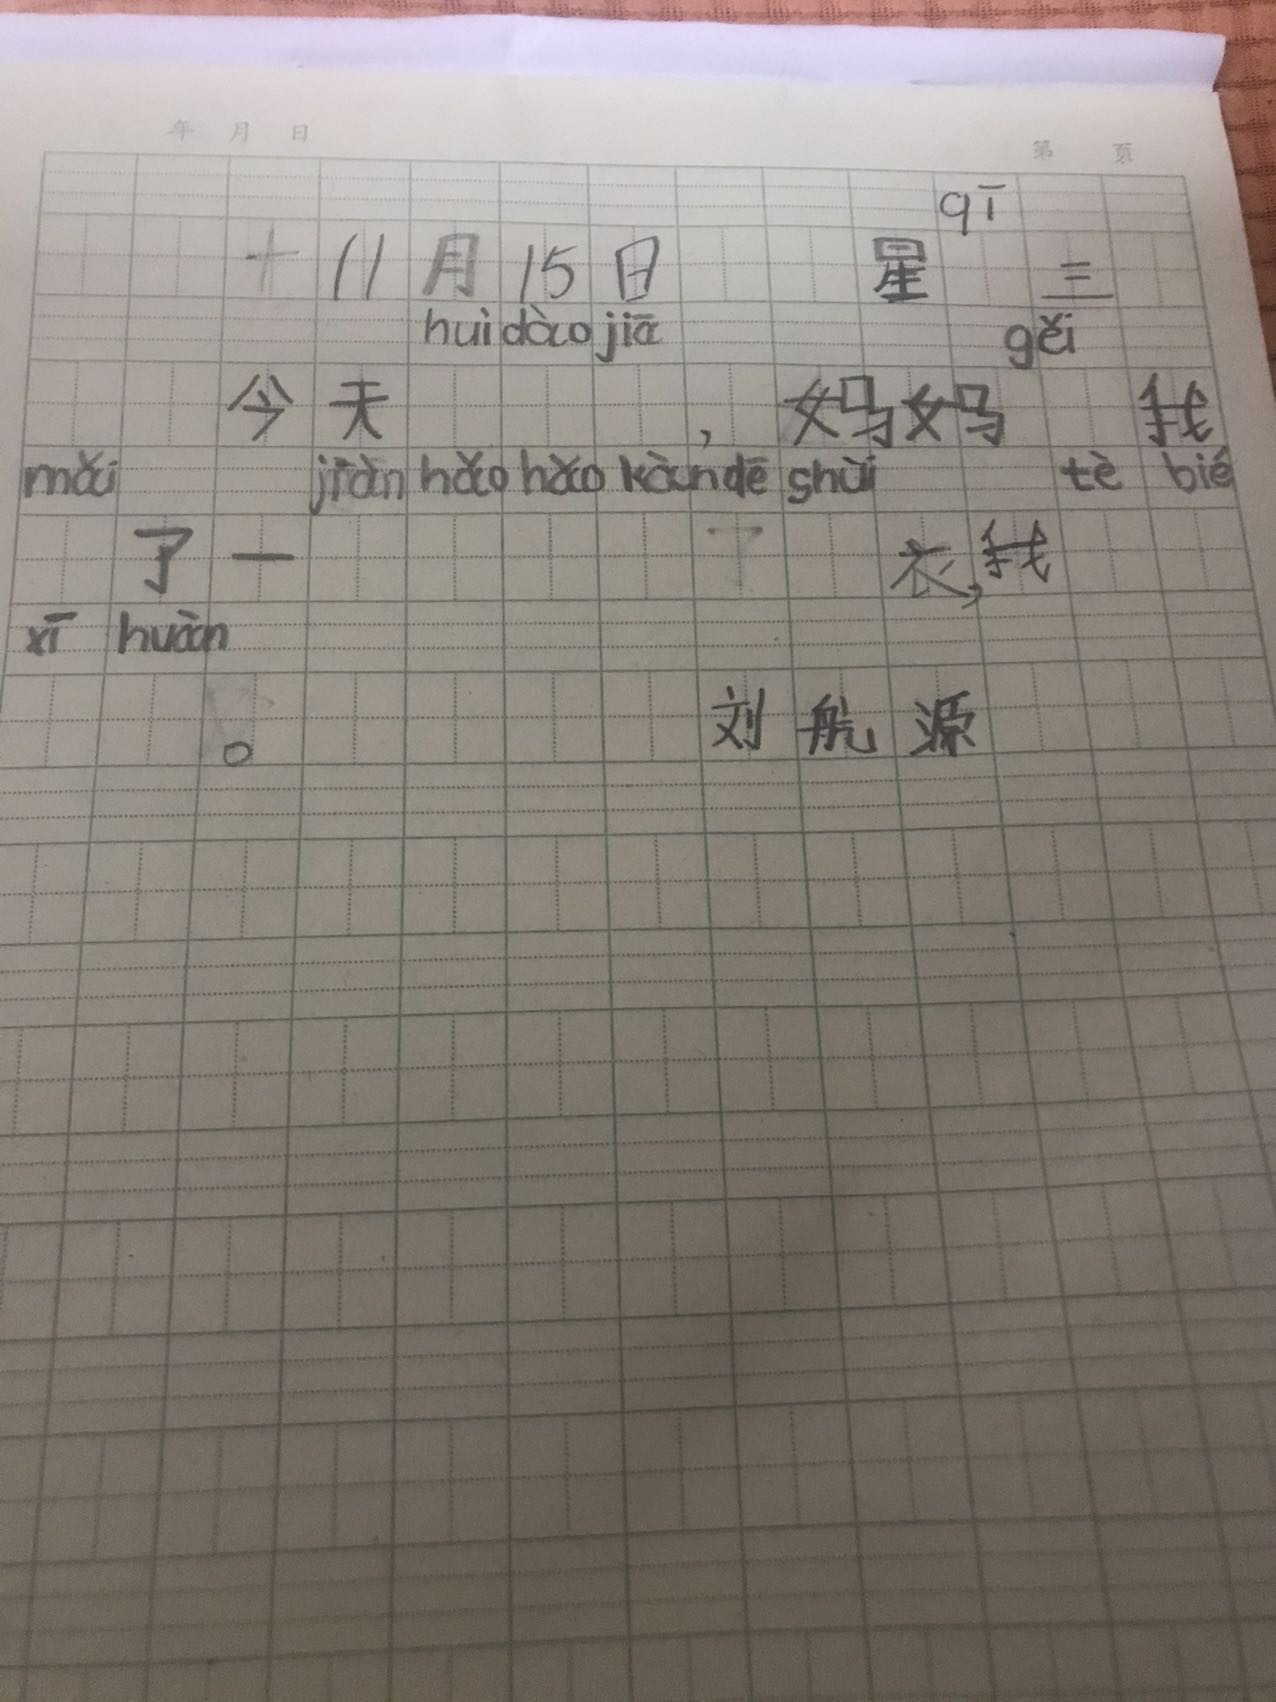 年 月 日 第 页
qī
11月15日 星 三
huì dào jiā gěi
今天 ，妈妈 我
mǎi jiàn hǎo hǎo kàn dē shùi tè bié
了一 衣，我
xī huàn
。 刘航源